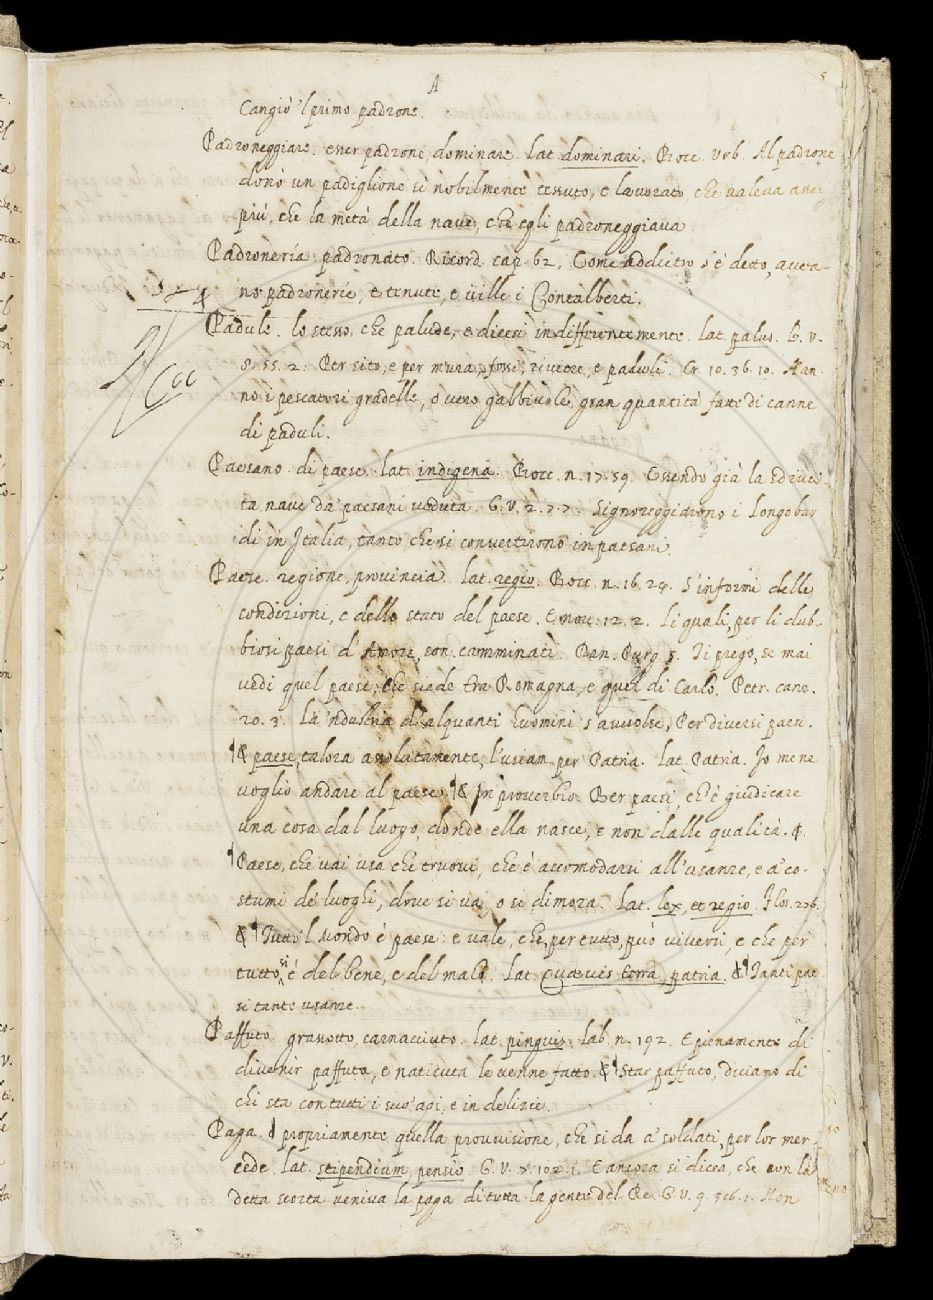 A
5
Cangiò 'l primo padrone.
Padroneggiare. esser padrone, dominare. Lat. dominari. Bocc. Urb. Al padrone
donò un padiglione sì nobilmente tenuto, e lavorato che valeva assai
più, che la metà della nave, che egli padroneggiava.
Padroneria. padronato. Ricord. cap. 62. Come addietro s'è detto, aveva-
no padronerie, e tenute, e ville i Contalberti.
Padule. lo stesso, che palude, e dicesi indifferentemente. lat. palus. G. V.
8. 55. 2. Per sito, e per mura, fossi, riviere, e paduli. Cr. 10. 36. 10. Han-
no i pescatori gradelle, o vero gabbiuole, gran quantità fatte di canne
di paduli.
Paesano. di paese. lat. indigena. Bocc. n. 17. 59. Essendo già la sdruci-
ta nave da' paesani veduta. G. V. 2. 7. 7. Signoreggiarono i Longobar
di in Italia, tanto che si convertirono in paesani.
Paese. regione, provincia. lat. regio. Bocc. n. 16. 29. S'informi delle
condizioni, e dello stato del paese. E nov. 12. 2. Li quali, per li dub-
biosi paesi d'Amore, son camminati. Dan. Purg. 5. Ti prego, se mai
vedi quel paese, che siede tra Romagna, e quel di Carlo. Petr. canz.
20. 3. La 'ndustria d'alquanti huomini s'avvolse, Per diversi paesi.
¶ & paese, talora assolutamente, l'usiam per Patria. lat. Patria. Io me ne
voglio andare al paese. ¶ & In proverbio. Per paesi, ch'è giudicare
una cosa dal luogo, donde ella nasce, e non dalle qualità. &
¶ Paese, che vai usa che truovi, che è accomodarsi all'usanze, e a' co-
stumi de' luoghi, dove si va, o si dimora. Lat. lex, et regio. Flos. 276.
& ¶ Tutto 'l Mondo è paese: e vale, che, per tutto, può viversi, e che per
tutto si è del bene, e del male. lat. Quaevis terra, patria. & ¶ Tanti pae
si tante usanze.
Paffuto. grassotto, carnacciuto. lat. pinguis. Lab. n. 192. E pienamente di
divenir paffuta, e naticuta le venne fatto. & ¶ Star paffuto, diciamo di
chi sta con tutti i suo' agi, e in delizie.
Paga. propriamente quella provvisione, che si da a' soldati, per lor mer-
cede. lat. stipendium, pensio. G. V. 8. 102. 1. E ancora si dicea, che con la
detta scorta veniva la paga di tutta la gente del Re. G. V. 9. 306. 1. Non